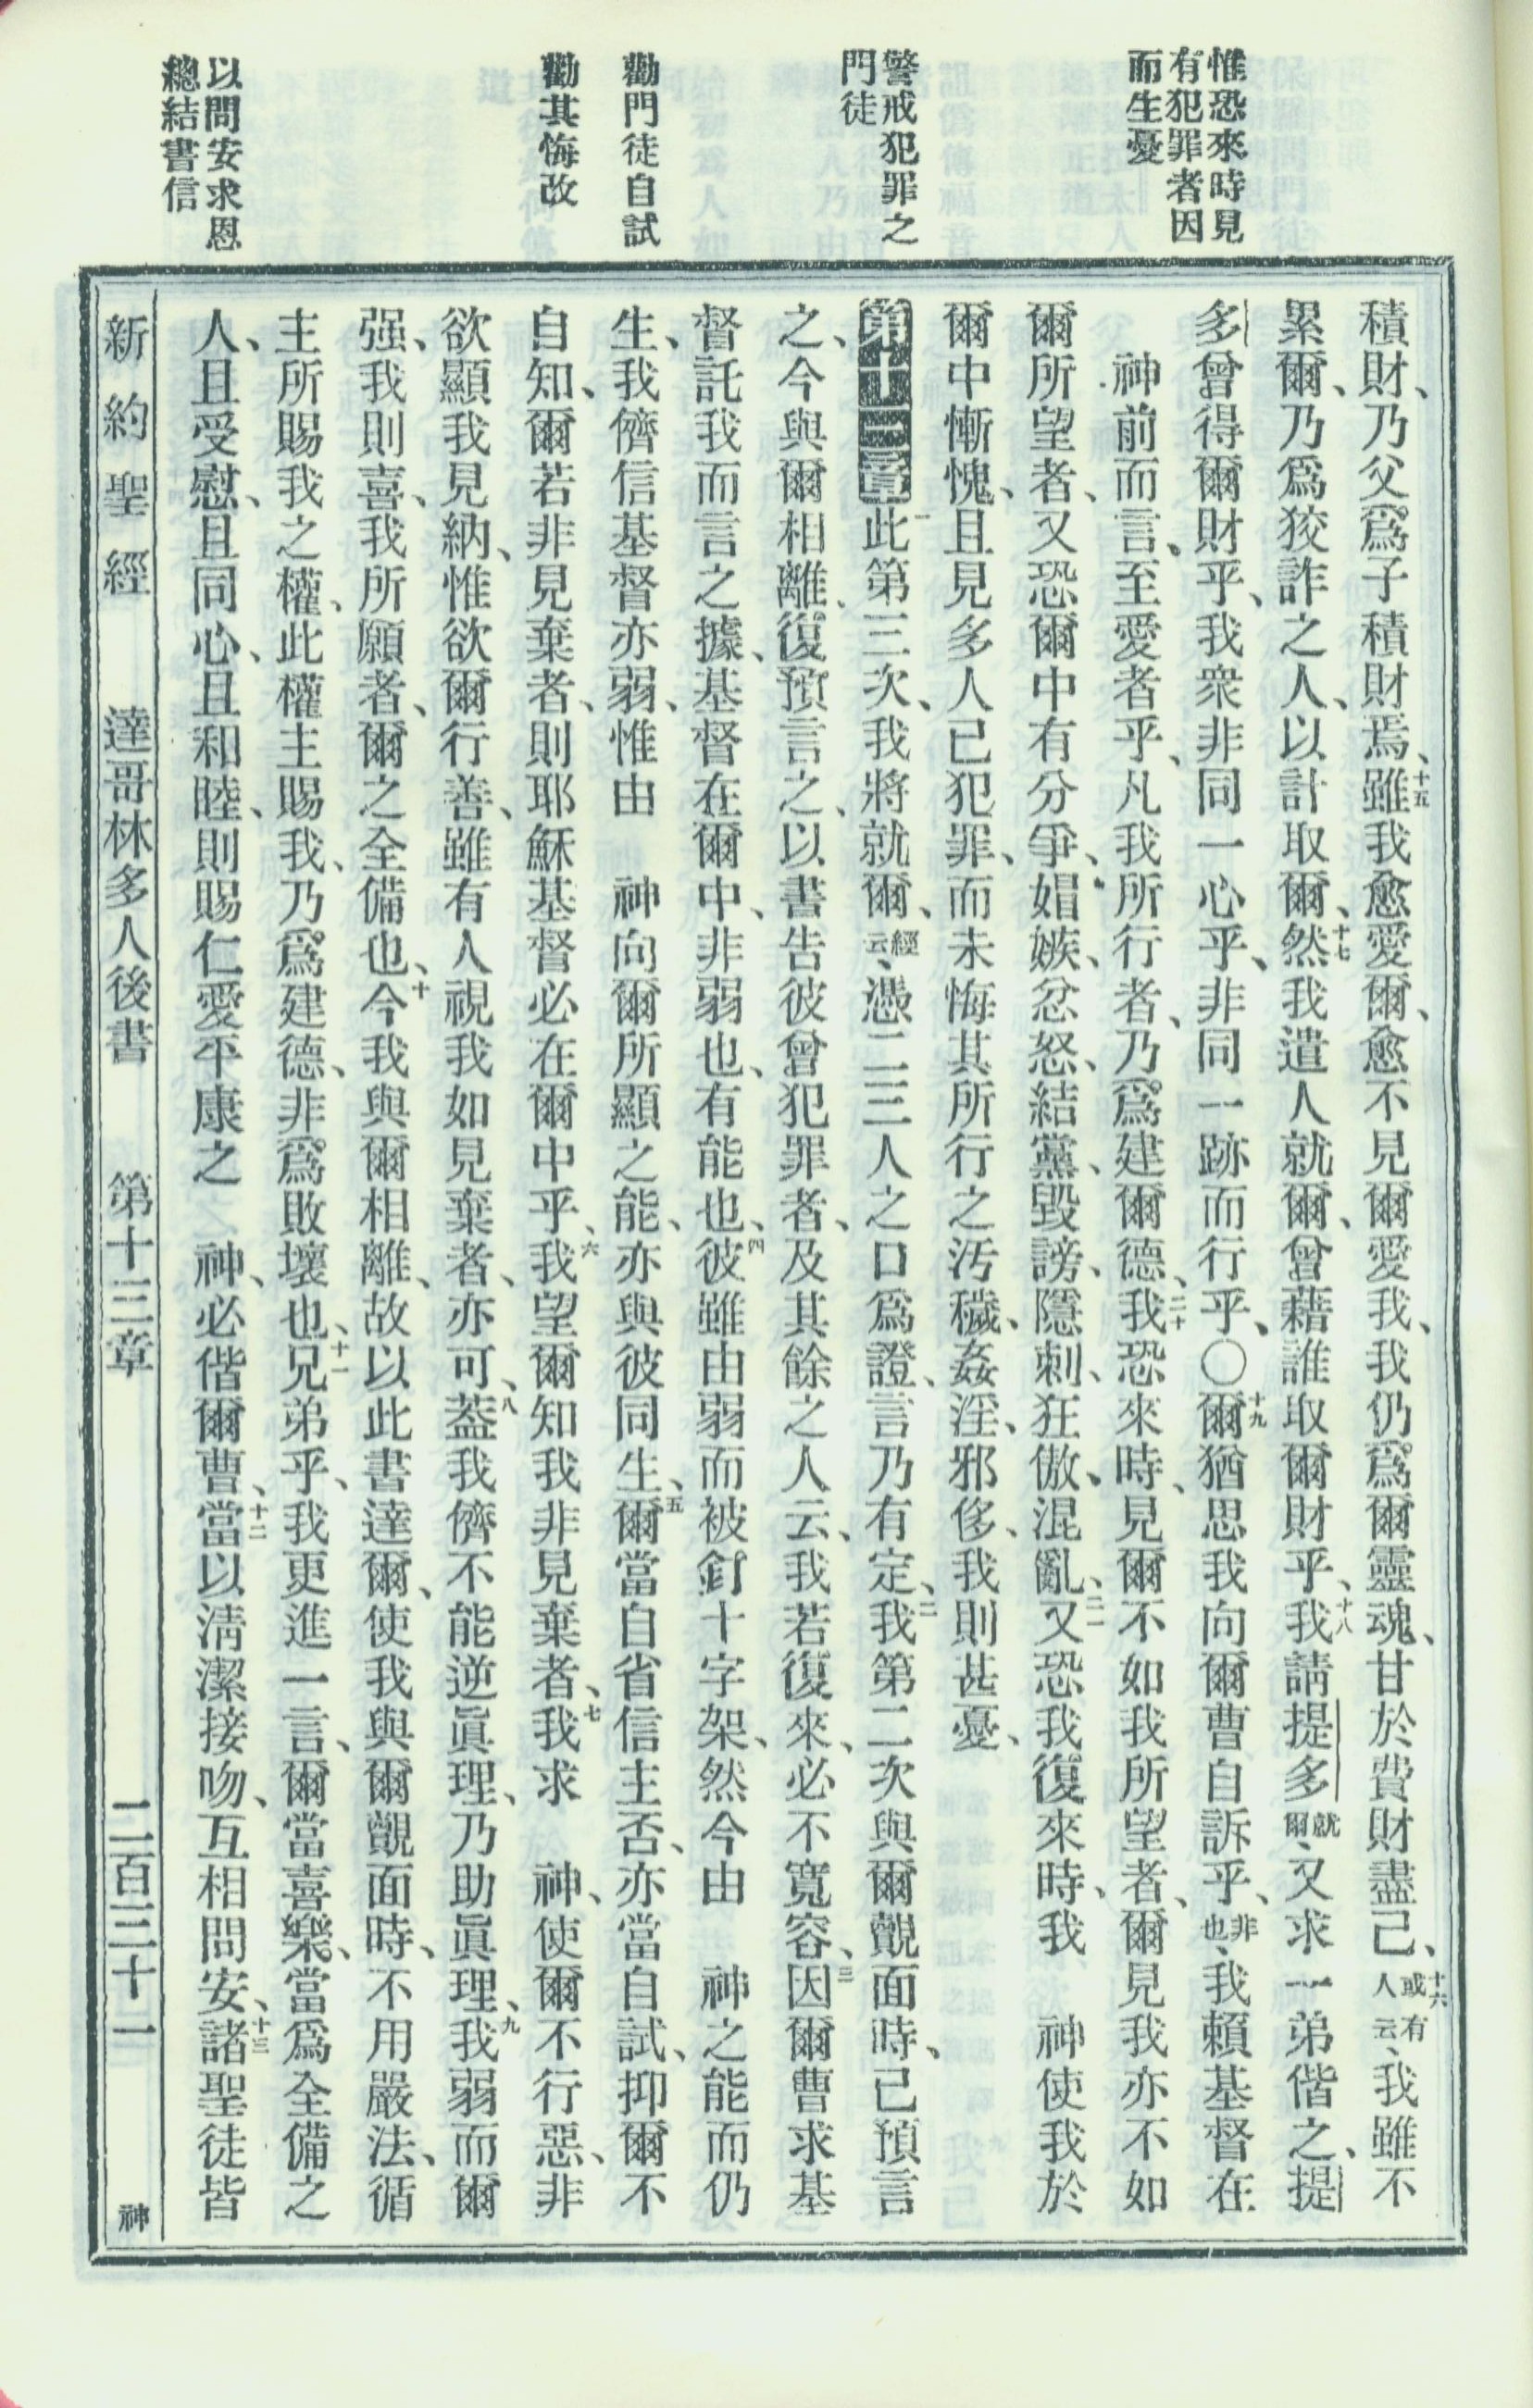 惟恐來時見
有犯罪者因
而生憂
警戒犯罪之
門徒
勸門徒自試
勸其悔改
以問安求恩
總結書信
積財、乃父爲子積財焉、十五雖我愈愛爾、愈不見爾愛我、我仍爲爾靈魂、甘於費財盡己、十六或有人云、我雖不
累爾、乃爲狡詐之人、以計取爾、十七然我遣人就爾、曾藉誰取爾財乎、十八我請提多就爾、又求一弟偕之、提
多曾得爾財乎、我衆非同一心乎、非同一跡而行乎、〇十九爾猶思我向爾曹自訴乎、非也、我賴基督在
神前而言、至愛者乎、凡我所行者、乃爲建爾德、二十我恐來時、見爾不如我所望者、爾見我亦不如
爾所望者、又恐爾中有分爭、媢嫉、忿怒、結黨、毀謗、隱刺、狂傲、混亂、二一又恐我復來時、我 神使我於
爾中慚愧、且見多人已犯罪、而未悔其所行之汚穢、姦淫、邪侈、我則甚憂、
第十三章一此第三次、我將就爾、經云、憑二三人之口爲證、言乃有定、二我第二次與爾覿面時、已預言
之、今與爾相離、復預言之、以書告彼曾犯罪者、及其餘之人云、我若復來、必不寬容、三因爾曹求基
督託我而言之據、基督在爾中、非弱也、有能也、四彼雖由弱而被釘十字架、然今由 神之能而仍
生、我儕信基督亦弱、惟由 神向爾所顯之能、亦與彼同生、五爾當自省信主否、亦當自試、抑爾不
自知、爾若非見棄者、則耶穌基督必在爾中乎、六我望爾知我非見棄者、七我求 神、使爾不行惡、非
欲顯我見納、惟欲爾行善、雖有人視我如見棄者、亦可、八葢我儕不能逆眞理、乃助眞理、九我弱而爾
强、我則喜、我所願者、爾之全備也、十今我與爾相離、故以此書達爾、使我與爾覿面時、不用嚴法、循
主所賜我之權、此權主賜我、乃爲建德、非爲敗壞也、十一兄弟乎、我更進一言、爾當喜樂、當爲全備之
人、且受慰、且同心、且和睦、則賜仁愛平康之 神、必偕爾曹、十二當以淸潔接吻、互相問安、十三諸聖徒皆
新約聖經 達哥林多人後書 第十三章 二百三十一 神